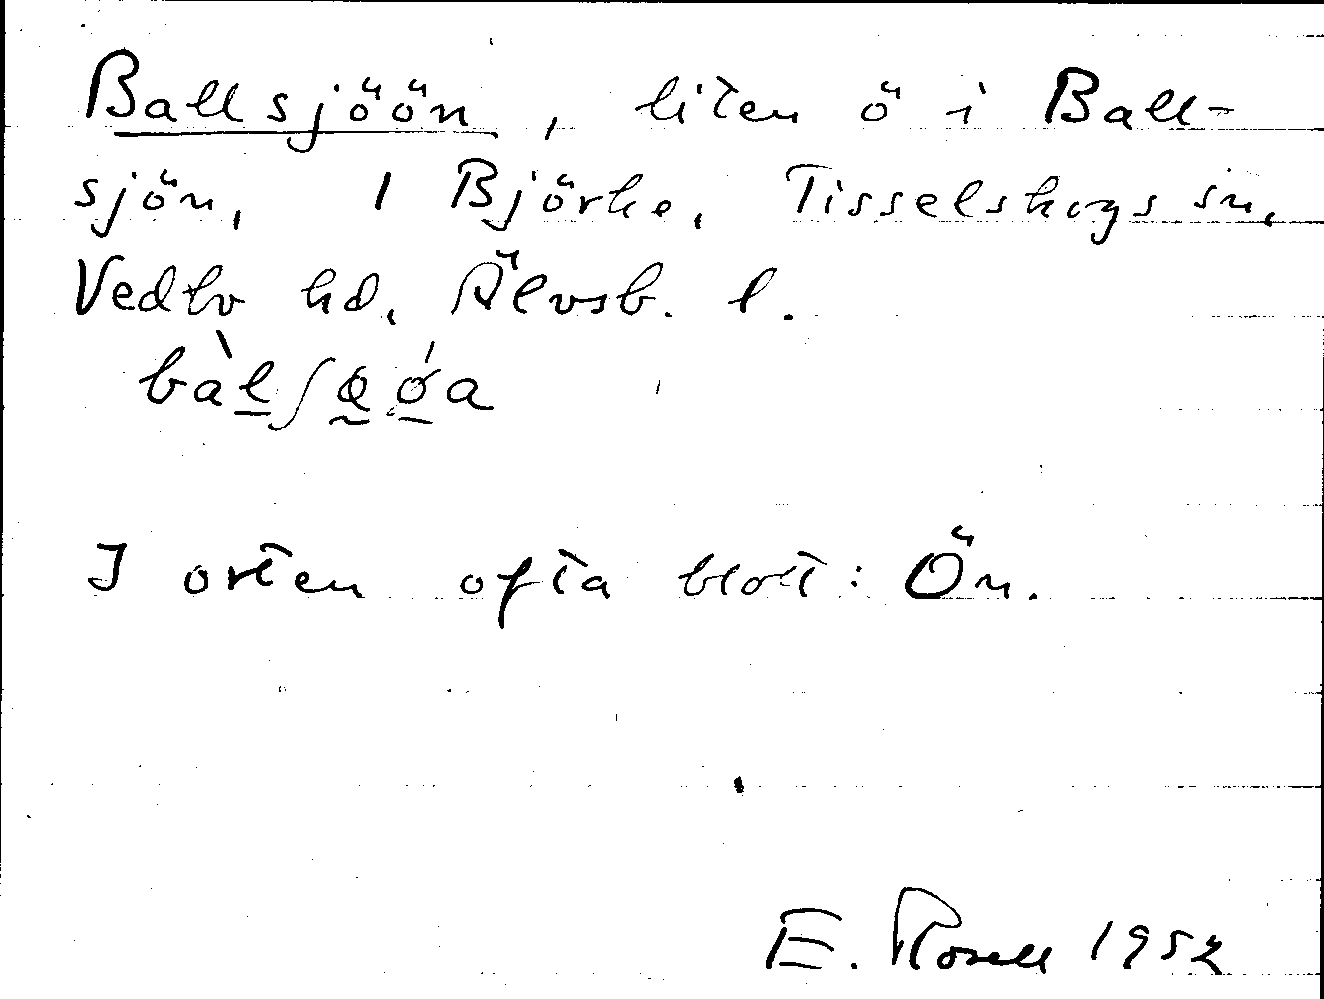 Ballsjöön, liten ö i Ball-
sjön, 1 Björke, Tisselskogs sn,
Vedbo hd, Älvsb. l.
I orten ofta blott: Ön.
E. Rosell 1952